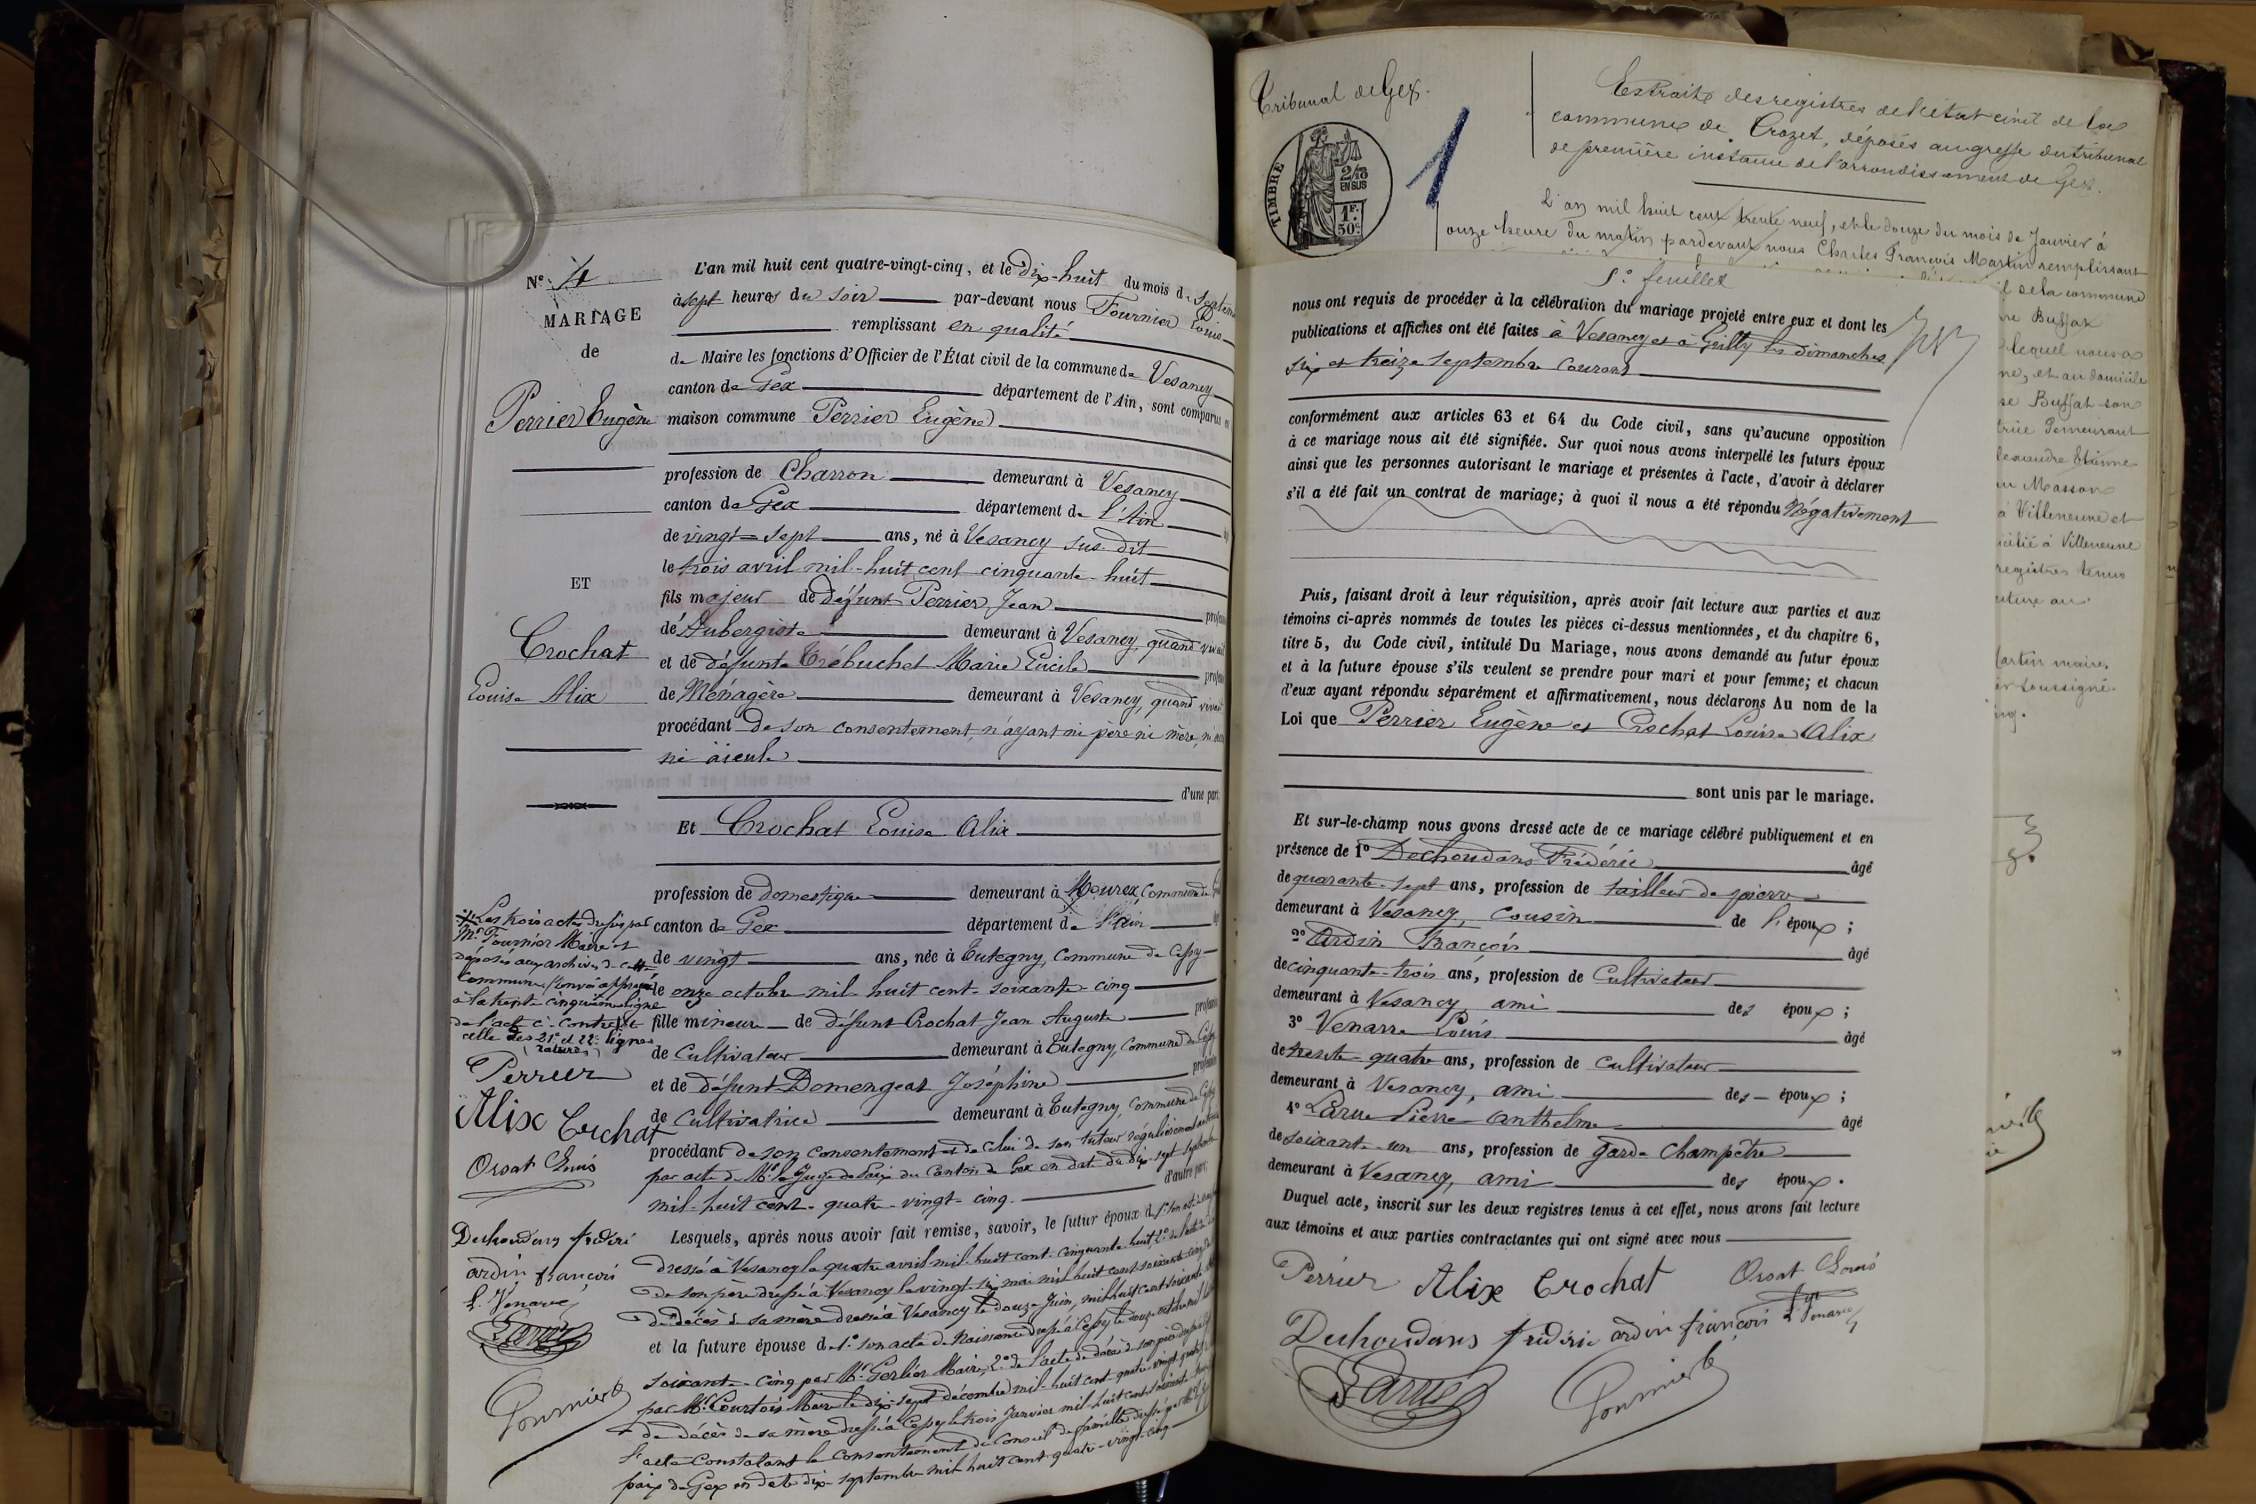 N° 4
MARIAGE
de
Perrier Eugène
ET
Crochat
Louise Alix
L'an mil huit cent quatre-vingt-cinq, et le dix-huit du mois de
à sept heures du soir par-devant nous Fournier Louis
remplissant en qualité
de Maire les fonctions d'Officier de l'État civil de la commune de Vesancy
canton de Gex département de l'Ain, sont comparus en
maison commune Perrier Eugène
profession de Charron demeurant à Vesancy
canton de Gex département de l'Ain
de vingt-sept ans, né à Vesancy sus-dit
le trois avril mil-huit cent cinquante-huit
fils majeur de défunt Perrier Jean
de Aubergiste demeurant à Vesancy, quand vivait
et de défunte Trébuchet Marie Lucile
de Ménagère demeurant à Vesancy, quand vivait
procédant de son consentement, n'ayant ni père ni mère, ni
ni aïeule
d'une part
Et Crochat Louise Alix
profession de domestique demeurant à Mourex, Commune de
canton de Gex département de l'Ain
de vingt ans, née à Tutegny, Commune de Cessy
le onze octobre mil huit cent soixante-cinq
fille mineure de défunt Crochat Jean Auguste
de Cultivateur demeurant à Tutegny, Commune de Cessy
et de défunt Domengeat Joséphine
de Cultivatrice demeurant à Tutegny, Commune de Cessy
procédant de son consentement et de celui de son tuteur régulièrement
par acte de Mr le Juge de Paix du Canton de Gex en date du dix-sept septembre
mil-huit cent-quatre-vingt-cinq.
d'autre part;
Lesquels, après nous avoir fait remise, savoir, le futur époux d
dressé à Vesancy le quatre avril mil-huit cent-cinquante-huit, 2° de l'acte de
de son père dressé à Vesancy le vingt-six mai mil huit cent soixante
de décès de sa mère dressé à Vesancy le douze Juin, mil huit cent soixante
et la future épouse de 1° son acte de Naissance dressé à Cessy le douze octobre mil
soixante-cinq par Mr Gerlier Maire, 2° de l'acte de décès de son père dressé
par Mr Courtois Maire le dix-sept décembre mil-huit cent-quatre-vingt
de décès de sa mère dressé à Cessy le trois Janvier mil huit cent soixante
l'acte Constatant le Consentement du Conseil de famille dressé par
paix de Gex en date dix-septembre mil huit cent-quatre-vingt-cinq
Les trois actes dressés par
Mr Fournier Maire et
déposés aux archives de cette
Commune, renvoi approuvé
à la trente-cinquième ligne
de l'acte ci-contre et
celle des 21e et 22e lignes
Perrier
Alix Crochat
Orsat Louis
Dechoudans frédéric
ardin françois
L. Venarre
Larue
Fournier L
Tribunal de Gex.
TIMBRE
2/10
EN SUS
1F.
50c
1
Extraits des registres de l'état civil de la
commune de Crozet, déposés au greffe du tribunal
de première instance de l'arrondissement de Gex.
L'an mil huit cent trente neuf, et le douze du mois de Janvier à
onze heure du matin pardevant nous Charles François Martin remplissant
5e feuillet
nous ont requis de procéder à la célébration du mariage projeté entre eux et dont les
publications et affiches ont été faites à Vesancy et à Grilly les dimanches
six et treize septembre courant
conformément aux articles 63 et 64 du Code civil, sans qu'aucune opposition
à ce mariage nous ait été signifiée. Sur quoi nous avons interpellé les futurs époux
ainsi que les personnes autorisant le mariage et présentes à l'acte, d'avoir à déclarer
s'il a été fait un contrat de mariage; à quoi il nous a été répondu Négativement
Puis, faisant droit à leur réquisition, après avoir fait lecture aux parties et aux
témoins ci-après nommés de toutes les pièces ci-dessus mentionnées, et du chapitre 6,
titre 5, du Code civil, intitulé Du Mariage, nous avons demandé au futur époux
et à la future épouse s'ils veulent se prendre pour mari et pour femme; et chacun
d'eux ayant répondu séparément et affirmativement, nous déclarons Au nom de la
Loi que Perrier Eugène et Crochat Louise Alix
sont unis par le mariage.
Et sur-le-champ nous avons dressé acte de ce mariage célébré publiquement et en
présence de 1° Dechoudans Frédéric âgé
de quarante-sept ans, profession de tailleur de pierre
demeurant à Vesancy, cousin de l'époux;
2° Ardin François âgé
de cinquante-trois ans, profession de Cultivateur
demeurant à Vesancy ami des époux;
3° Venarre Louis âgé
de trente-quatre ans, profession de cultivateur
demeurant à Vesancy, ami des époux;
4° Larue Pierre Anthelme âgé
de soixante-un ans, profession de garde Champêtre
demeurant à Vesancy, ami des époux.
Duquel acte, inscrit sur les deux registres tenus à cet effet, nous avons fait lecture
aux témoins et aux parties contractantes qui ont signé avec nous
Perrier Alix Crochat Orsat Louis
Dechoudans frédéric ardin françois L Venarre
Larue Fournier L